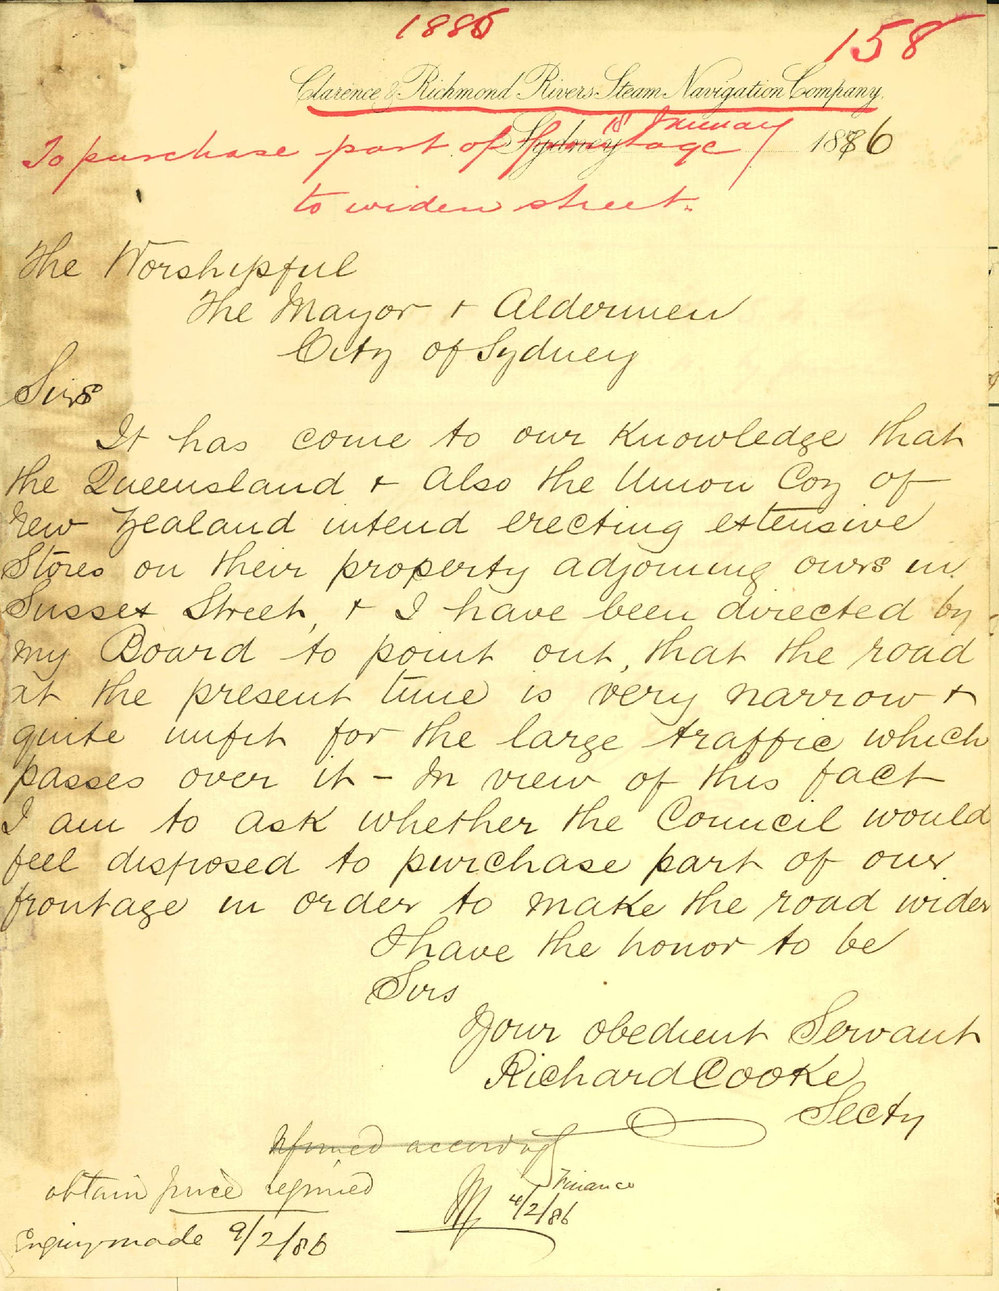 1886
158
Clarence & Richmond Rivers Steam Navigation Company
Sydney 18 January 1886
To purchase part of frontage
to widen street.
The Worshipful
The Mayor & Aldermen
City of Sydney
Sirs
It has come to our knowledge that
the Queensland & also the Union Coy of
New Zealand intend erecting extensive
Stores on their property adjoining ours in
Sussex Street, & I have been directed by
my Board to point out, that the road
at the present time is very narrow &
quite unfit for the large traffic which
passes over it - In view of this fact
I am to ask whether the Council would
feel disposed to purchase part of our
frontage in order to make the road wider
I have the honor to be
Sirs
Your obedient Servant
Richard Cooke
Secty
Informed accordingly
obtain price required
Finance
4/2/86
Enquiry made 9/2/86